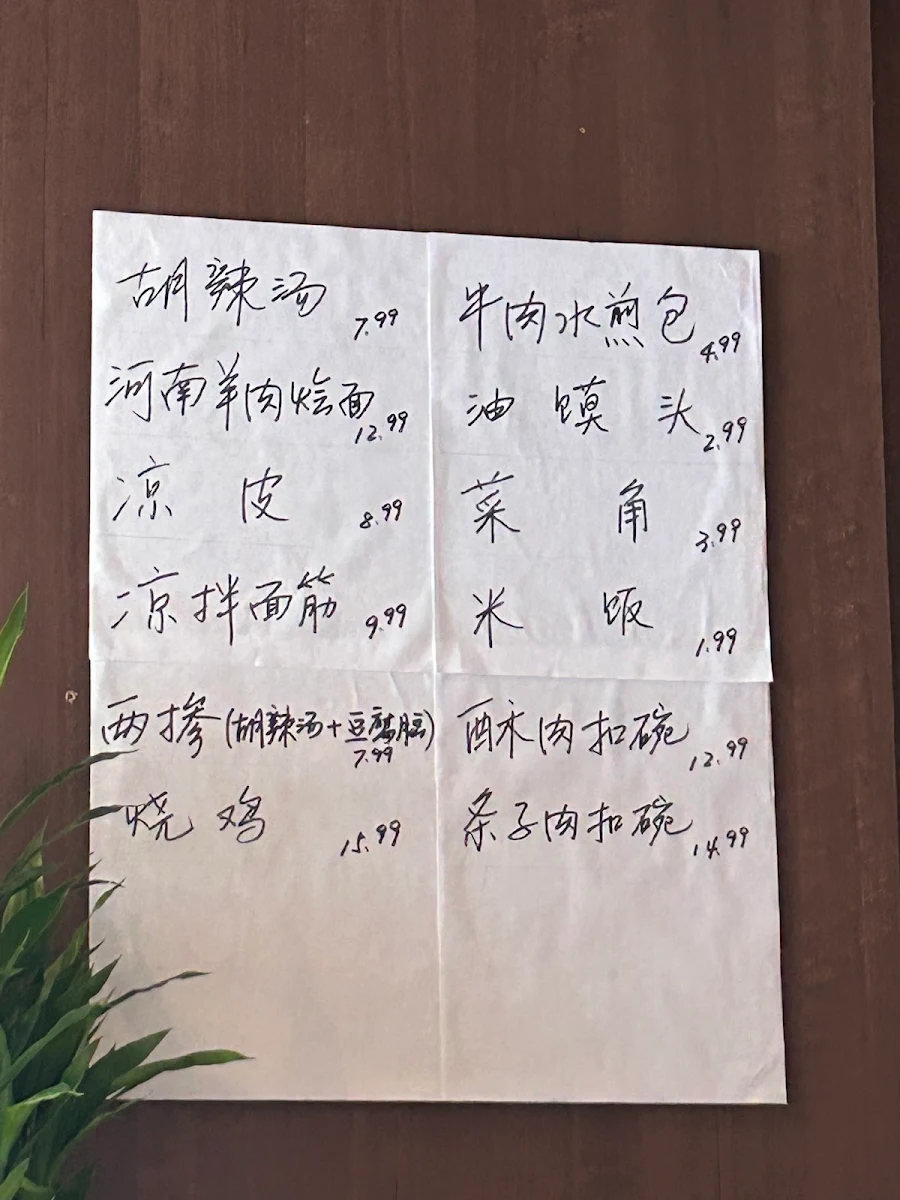 胡辣汤 7.99
河南羊肉烩面 12.99
凉皮 8.99
凉拌面筋 9.99
两掺(胡辣汤+豆腐脑) 7.99
烧鸡 15.99
牛肉水煎包 4.99
油馍头 2.99
菜角 3.99
米饭 1.99
酥肉扣碗 12.99
条子肉扣碗 14.99